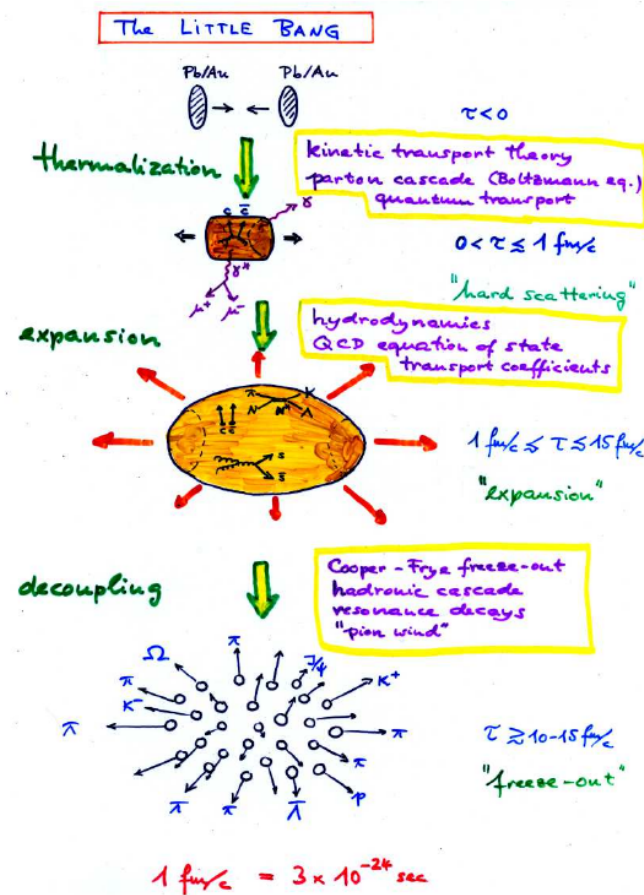 The LITTLE BANG
Pb/Au Pb/Au
τ < 0
thermalization
kinetic transport theory
parton cascade (Boltzmann eq.)
quantum transport
c c̄ γ
0 < τ ≲ 1 fm/c
γ*
μ⁺ μ⁻
"hard scattering"
expansion
hydrodynamics
QCD equation of state
transport coefficients
π K
N N* Λ
c c̄
s
s̄
1 fm/c ≲ τ ≲ 15 fm/c
"expansion"
decoupling
Cooper-Frye freeze-out
hadronic cascade
resonance decays
"pion wind"
Ω π J/ψ K⁺
π
K⁻
π π
τ ≳ 10-15 fm/c
π
"freeze-out"
π π Λ̄ p
1 fm/c = 3 × 10⁻²⁴ sec